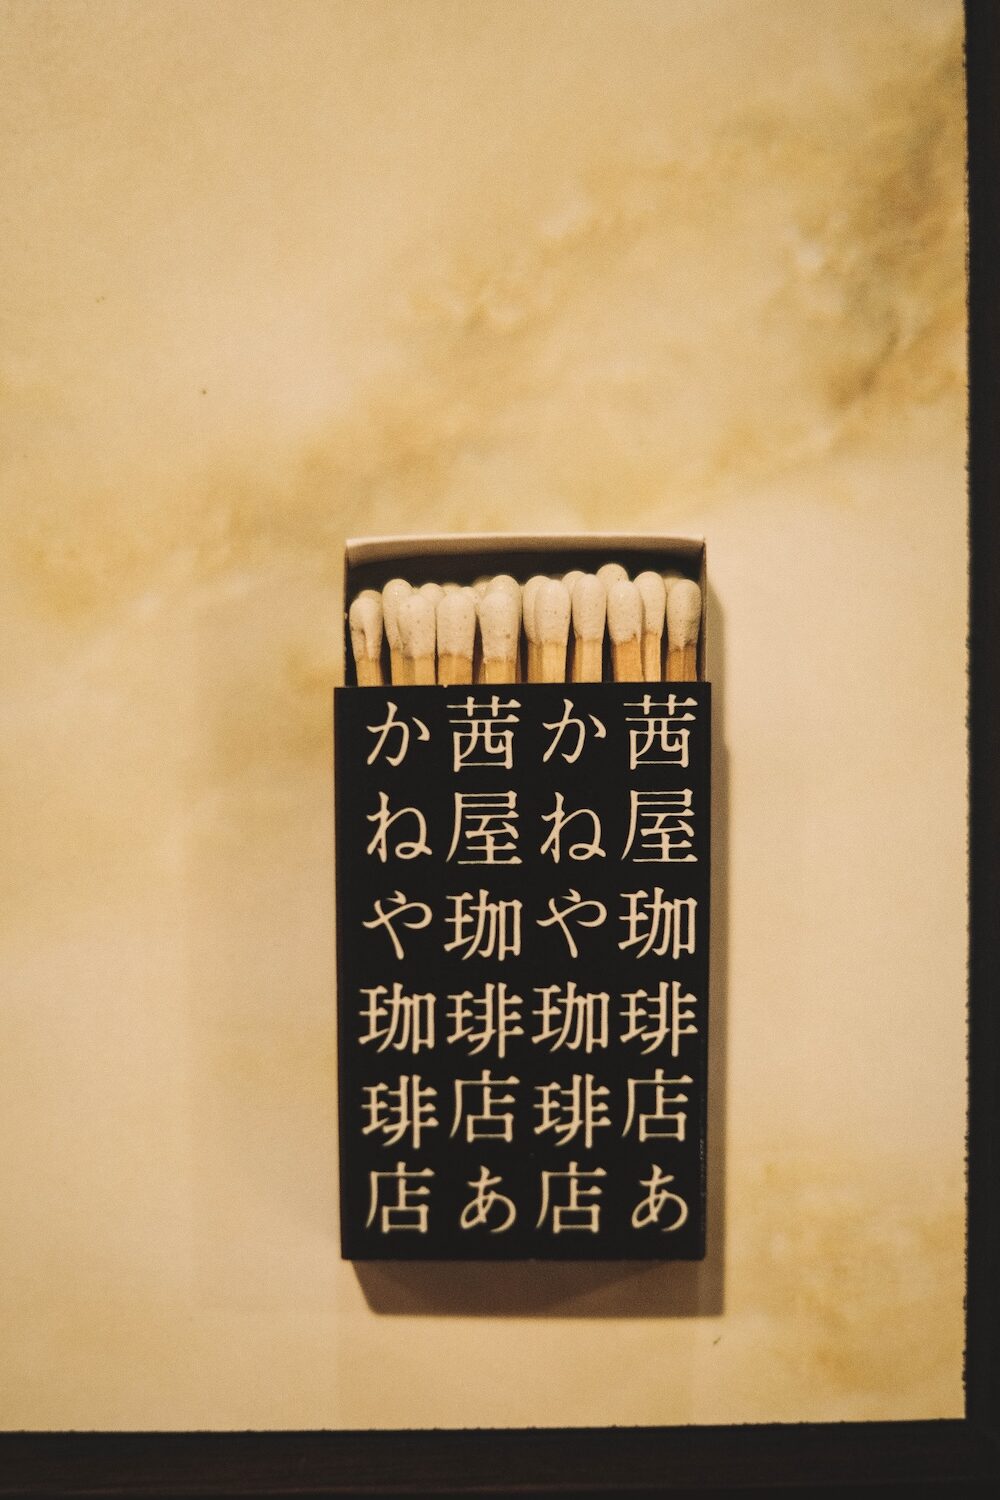 茜屋珈琲店あ
かねや珈琲店
茜屋珈琲店あ
かねや珈琲店